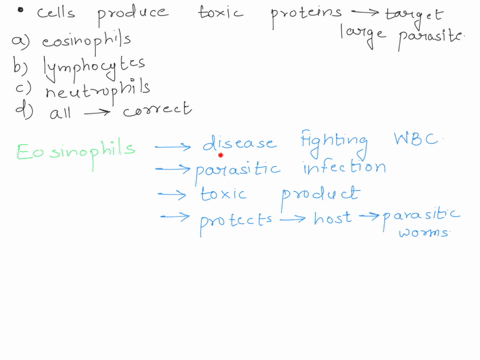 • Cells produce toxic proteins → target
large parasite.
a) eosinophils
b) lymphocytes
c) neutrophils
d) all → correct
Eosinophils → disease fighting WBC
→ parasitic infection
→ toxic product
→ protects → host → parasitic
worms